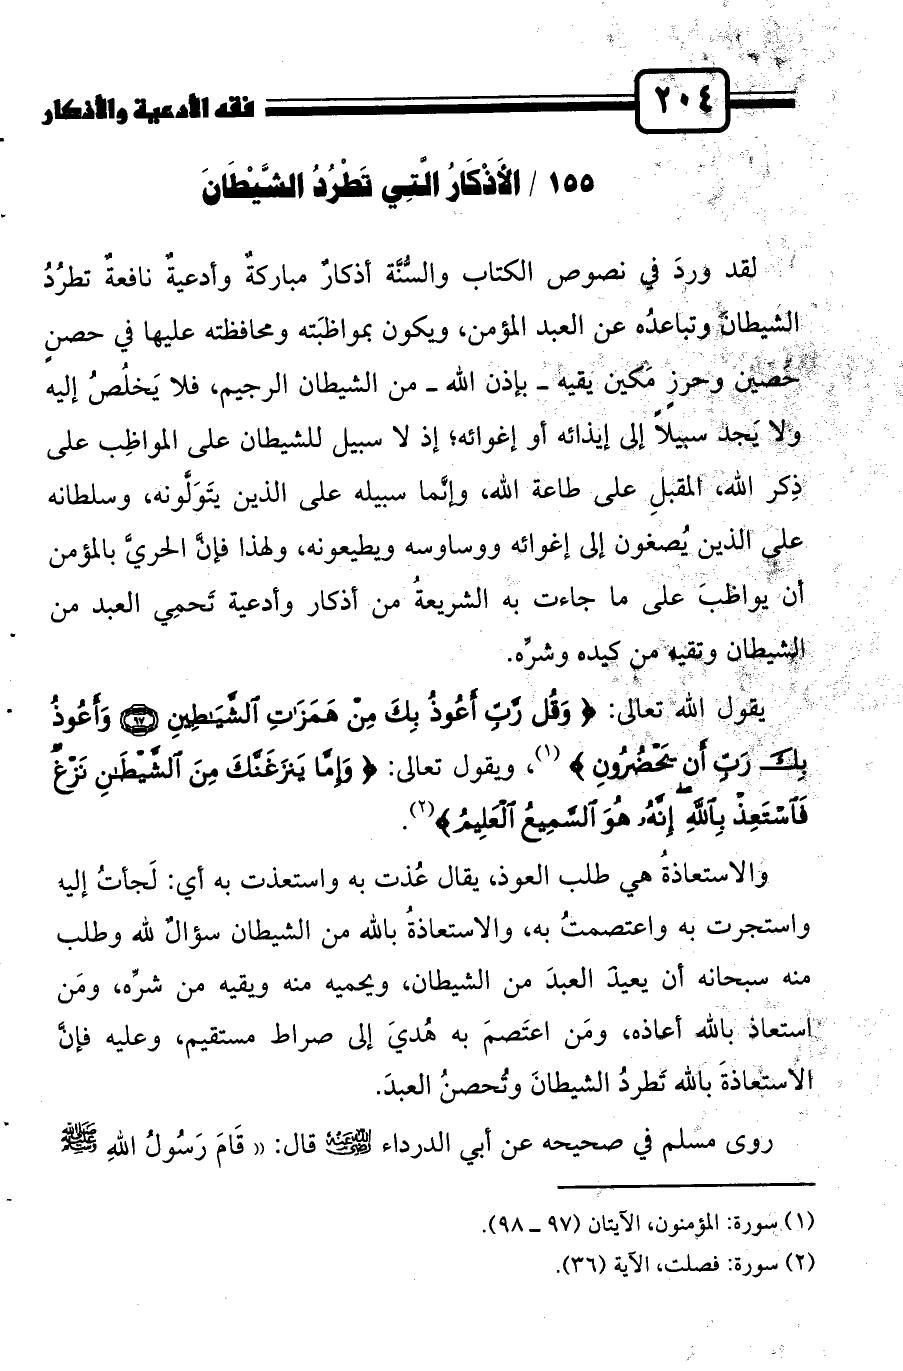 ٢٠٤
فقه الأدعية والأذكار
١٥٥ / الأَذْكَارُ الَّتِي تَطْرُدُ الشَّيْطَانَ
لقد وردَ في نصوص الكتاب والسُّنَّة أذكارٌ مباركةٌ وأدعيةٌ نافعةٌ تطرُدُ
الشيطانَ وتباعدُه عن العبد المؤمن، ويكون بمواظبَته ومحافظته عليها في حصنٍ
حَصين وحرزٍ مَكين يقيه ـ بإذن الله ـ من الشيطان الرجيم، فلا يَخلُصُ إليه
ولا يَجد سبيلاً إلى إيذائه أو إغوائه؛ إذ لا سبيل للشيطان على المواظِب على
ذِكر الله، المقبلِ على طاعة الله، وإنَّما سبيله على الذين يتَولَّونه، وسلطانه
على الذين يُصغون إلى إغوائه ووساوسه ويطيعونه، ولهذا فإنَّ الحريَّ بالمؤمن
أن يواظبَ على ما جاءت به الشريعةُ من أذكار وأدعية تَحمِي العبد من
الشيطان وتقيه من كيده وشرِّه.
يقول الله تعالى: ﴿ وَقُل رَّبِّ أَعُوذُ بِكَ مِنْ هَمَزَٰتِ ٱلشَّيَـٰطِينِ ٩٧ وَأَعُوذُ
بِكَ رَبِّ أَن يَحْضُرُونِ ﴾ (١)، ويقول تعالى: ﴿ وَإِمَّا يَنزَغَنَّكَ مِنَ ٱلشَّيْطَـٰنِ نَزْغٌ
فَٱسْتَعِذْ بِٱللَّهِ ۖ إِنَّهُۥ هُوَ ٱلسَّمِيعُ ٱلْعَلِيمُ ﴾(٢).
والاستعاذةُ هي طلب العوذ، يقال عُذت به واستعذت به أي: لَجأتُ إليه
واستجرت به واعتصمتُ به، والاستعاذةُ بالله من الشيطان سؤالٌ لله وطلب
منه سبحانه أن يعيذَ العبدَ من الشيطان، ويحميه منه ويقيه من شرِّه، ومَن
استعاذ بالله أعاذه، ومَن اعتَصمَ به هُديَ إلى صراط مستقيم، وعليه فإنَّ
الاستعاذةَ بالله تَطردُ الشيطانَ وتُحصنُ العبدَ.
روى مسلم في صحيحه عن أبي الدرداء رضي الله عنه قال: « قَامَ رَسُولُ اللهِ ﷺ
(١) سورة: المؤمنون، الآيتان (٩٧ ـ ٩٨).
(٢) سورة: فصلت، الآية (٣٦).